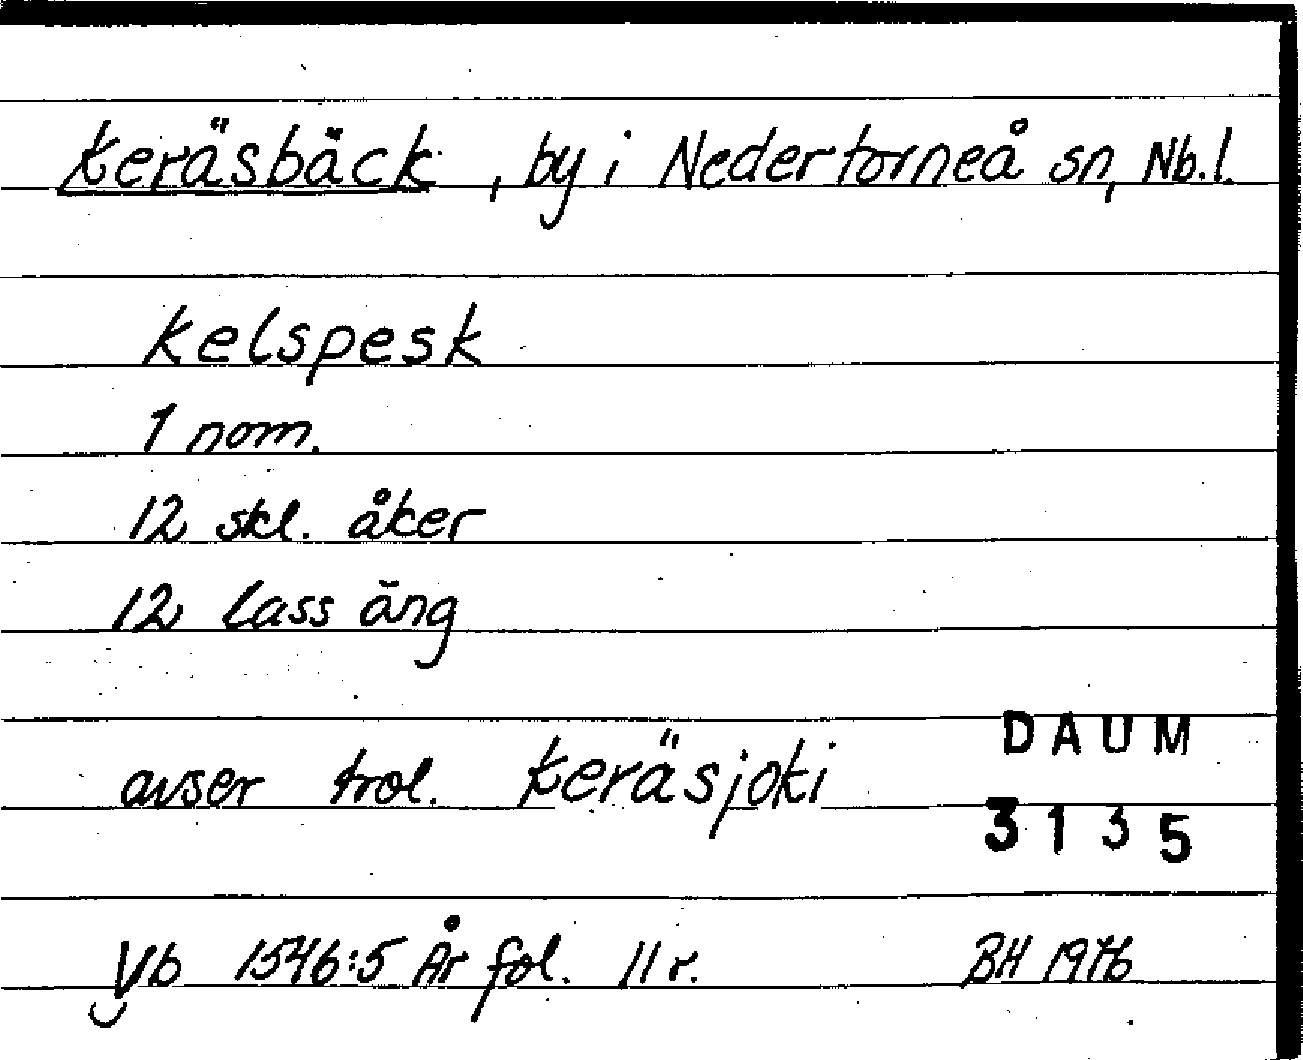 Keräsbäck, by i Nedertorneå sn, Nb.l.
Kelspesk
1 nom.
12 skl. åker
12 lass äng
avser trol. Keräsjoki
DAUM
3135
Vb 1546:5 År fol. 11 r.
BH 1976